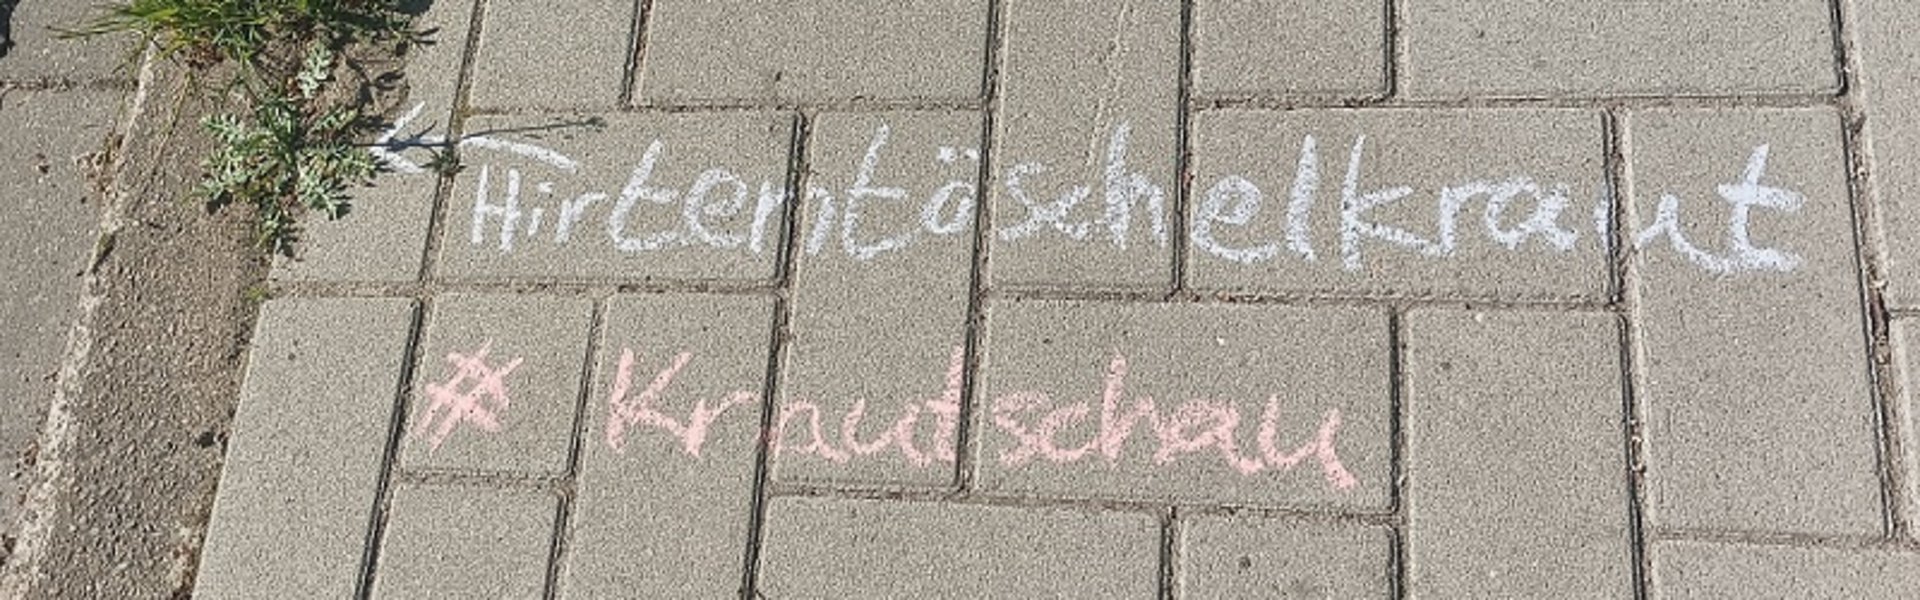 Hirtentäschelkraut
# Krautschau